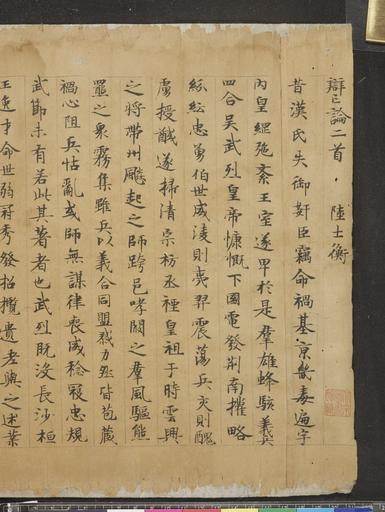 辯亡論二首 陸士衡
昔漢氏失御奸臣竊命禍基京畿毒遍宇
內皇綱弛紊王室遂卑於是羣雄蜂駭義兵
四合吳武烈皇帝慷慨下國電發荊南摧略
紛紜忠勇伯世威淩則夷羿震蕩兵交則醜
虜授馘遂掃清宗祊烝禋皇祖于時雲興
之將帶州飈起之師跨邑哮闞之羣風驅熊
羆之衆霧集雖兵以義合同盟戮力然皆苞藏
禍心阻兵怙亂或師無謀律喪威稔寇忠規
武節未有若此其著者也武烈既沒長沙桓
王逸才命世弱冠秀發招攬遺老與之述業